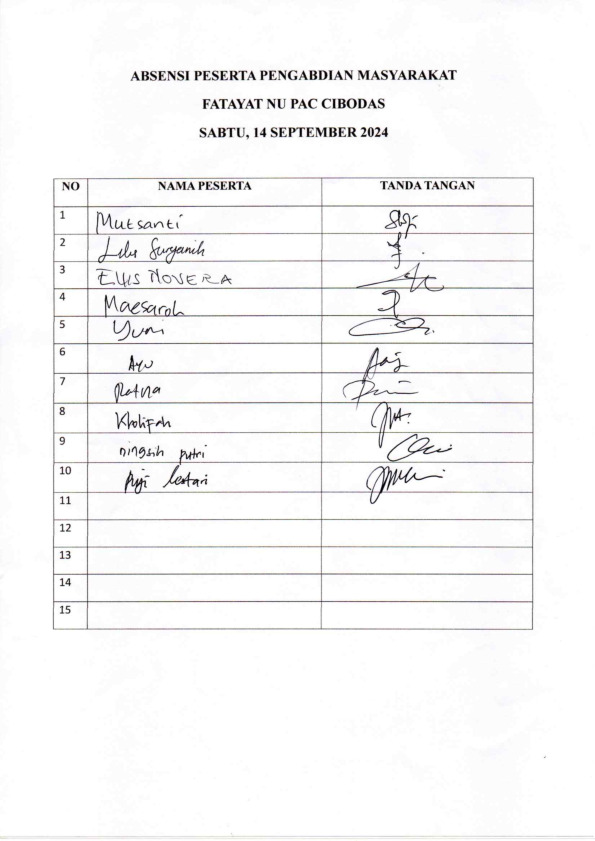 ABSENSI PESERTA PENGABDIAN MASYARAKAT
FATAYAT NU PAC CIBODAS
SABTU, 14 SEPTEMBER 2024
NO NAMA PESERTA TANDA TANGAN
1 Mutsanti
2 Lilis Suryanih
3 ELLIS NOVERA
4 Maesaroh
5 Yuni
6 Ayu
7 Ratna
8 Kholifah
9 ningsih putri
10 lestari
11
12
13
14
15